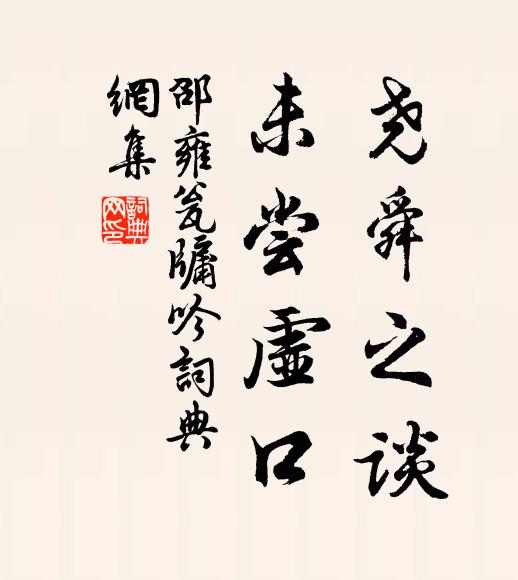 尧舜之谈
未尝虚口
邵雍瓮牖吟詞典
網集
詞典
网印